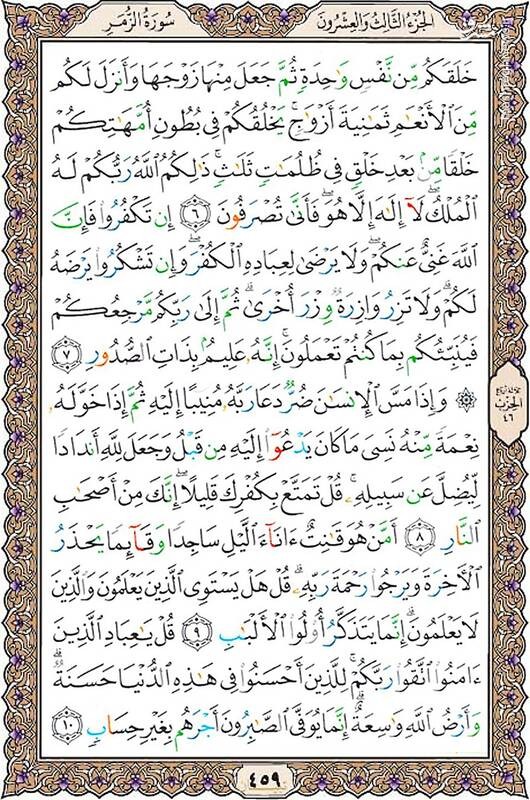 سُورَةُ الزُّمَرِ
الجُزءُ الثَّالِثُ وَالعِشرُونَ
خَلَقَكُم مِّن نَّفْسٍ وَٰحِدَةٍ ثُمَّ جَعَلَ مِنْهَا زَوْجَهَا وَأَنزَلَ لَكُم
مِّنَ ٱلْأَنْعَٰمِ ثَمَٰنِيَةَ أَزْوَٰجٍ ۚ يَخْلُقُكُمْ فِى بُطُونِ أُمَّهَٰتِكُمْ
خَلْقًا مِّنۢ بَعْدِ خَلْقٍ فِى ظُلُمَٰتٍ ثَلَٰثٍ ۚ ذَٰلِكُمُ ٱللَّهُ رَبُّكُمْ لَهُ
ٱلْمُلْكُ ۖ لَآ إِلَٰهَ إِلَّا هُوَ ۖ فَأَنَّىٰ تُصْرَفُونَ ٦ إِن تَكْفُرُوا۟ فَإِنَّ
ٱللَّهَ غَنِىٌّ عَنكُمْ ۖ وَلَا يَرْضَىٰ لِعِبَادِهِ ٱلْكُفْرَ ۖ وَإِن تَشْكُرُوا۟ يَرْضَهُ
لَكُمْ ۗ وَلَا تَزِرُ وَازِرَةٌ وِزْرَ أُخْرَىٰ ۗ ثُمَّ إِلَىٰ رَبِّكُم مَّرْجِعُكُمْ
فَيُنَبِّئُكُم بِمَا كُنتُمْ تَعْمَلُونَ ۚ إِنَّهُۥ عَلِيمٌۢ بِذَاتِ ٱلصُّدُورِ ٧
۞ وَإِذَا مَسَّ ٱلْإِنسَٰنَ ضُرٌّ دَعَا رَبَّهُۥ مُنِيبًا إِلَيْهِ ثُمَّ إِذَا خَوَّلَهُۥ
نِعْمَةً مِّنْهُ نَسِىَ مَا كَانَ يَدْعُوٓا۟ إِلَيْهِ مِن قَبْلُ وَجَعَلَ لِلَّهِ أَندَادًا
لِّيُضِلَّ عَن سَبِيلِهِۦ ۚ قُلْ تَمَتَّعْ بِكُفْرِكَ قَلِيلًا ۖ إِنَّكَ مِنْ أَصْحَٰبِ
ٱلنَّارِ ٨ أَمَّنْ هُوَ قَٰنِتٌ ءَانَآءَ ٱلَّيْلِ سَاجِدًا وَقَآئِمًا يَحْذَرُ
ٱلْءَاخِرَةَ وَيَرْجُوا۟ رَحْمَةَ رَبِّهِۦ ۗ قُلْ هَلْ يَسْتَوِى ٱلَّذِينَ يَعْلَمُونَ وَٱلَّذِينَ
لَا يَعْلَمُونَ ۗ إِنَّمَا يَتَذَكَّرُ أُو۟لُوا۟ ٱلْأَلْبَٰبِ ٩ قُلْ يَٰعِبَادِ ٱلَّذِينَ
ءَامَنُوا۟ ٱتَّقُوا۟ رَبَّكُمْ ۚ لِلَّذِينَ أَحْسَنُوا۟ فِى هَٰذِهِ ٱلدُّنْيَا حَسَنَةٌ ۗ
وَأَرْضُ ٱللَّهِ وَٰسِعَةٌ ۗ إِنَّمَا يُوَفَّى ٱلصَّٰبِرُونَ أَجْرَهُم بِغَيْرِ حِسَابٍ ١٠
الحِزْبِ
٤٦
٤٥٩